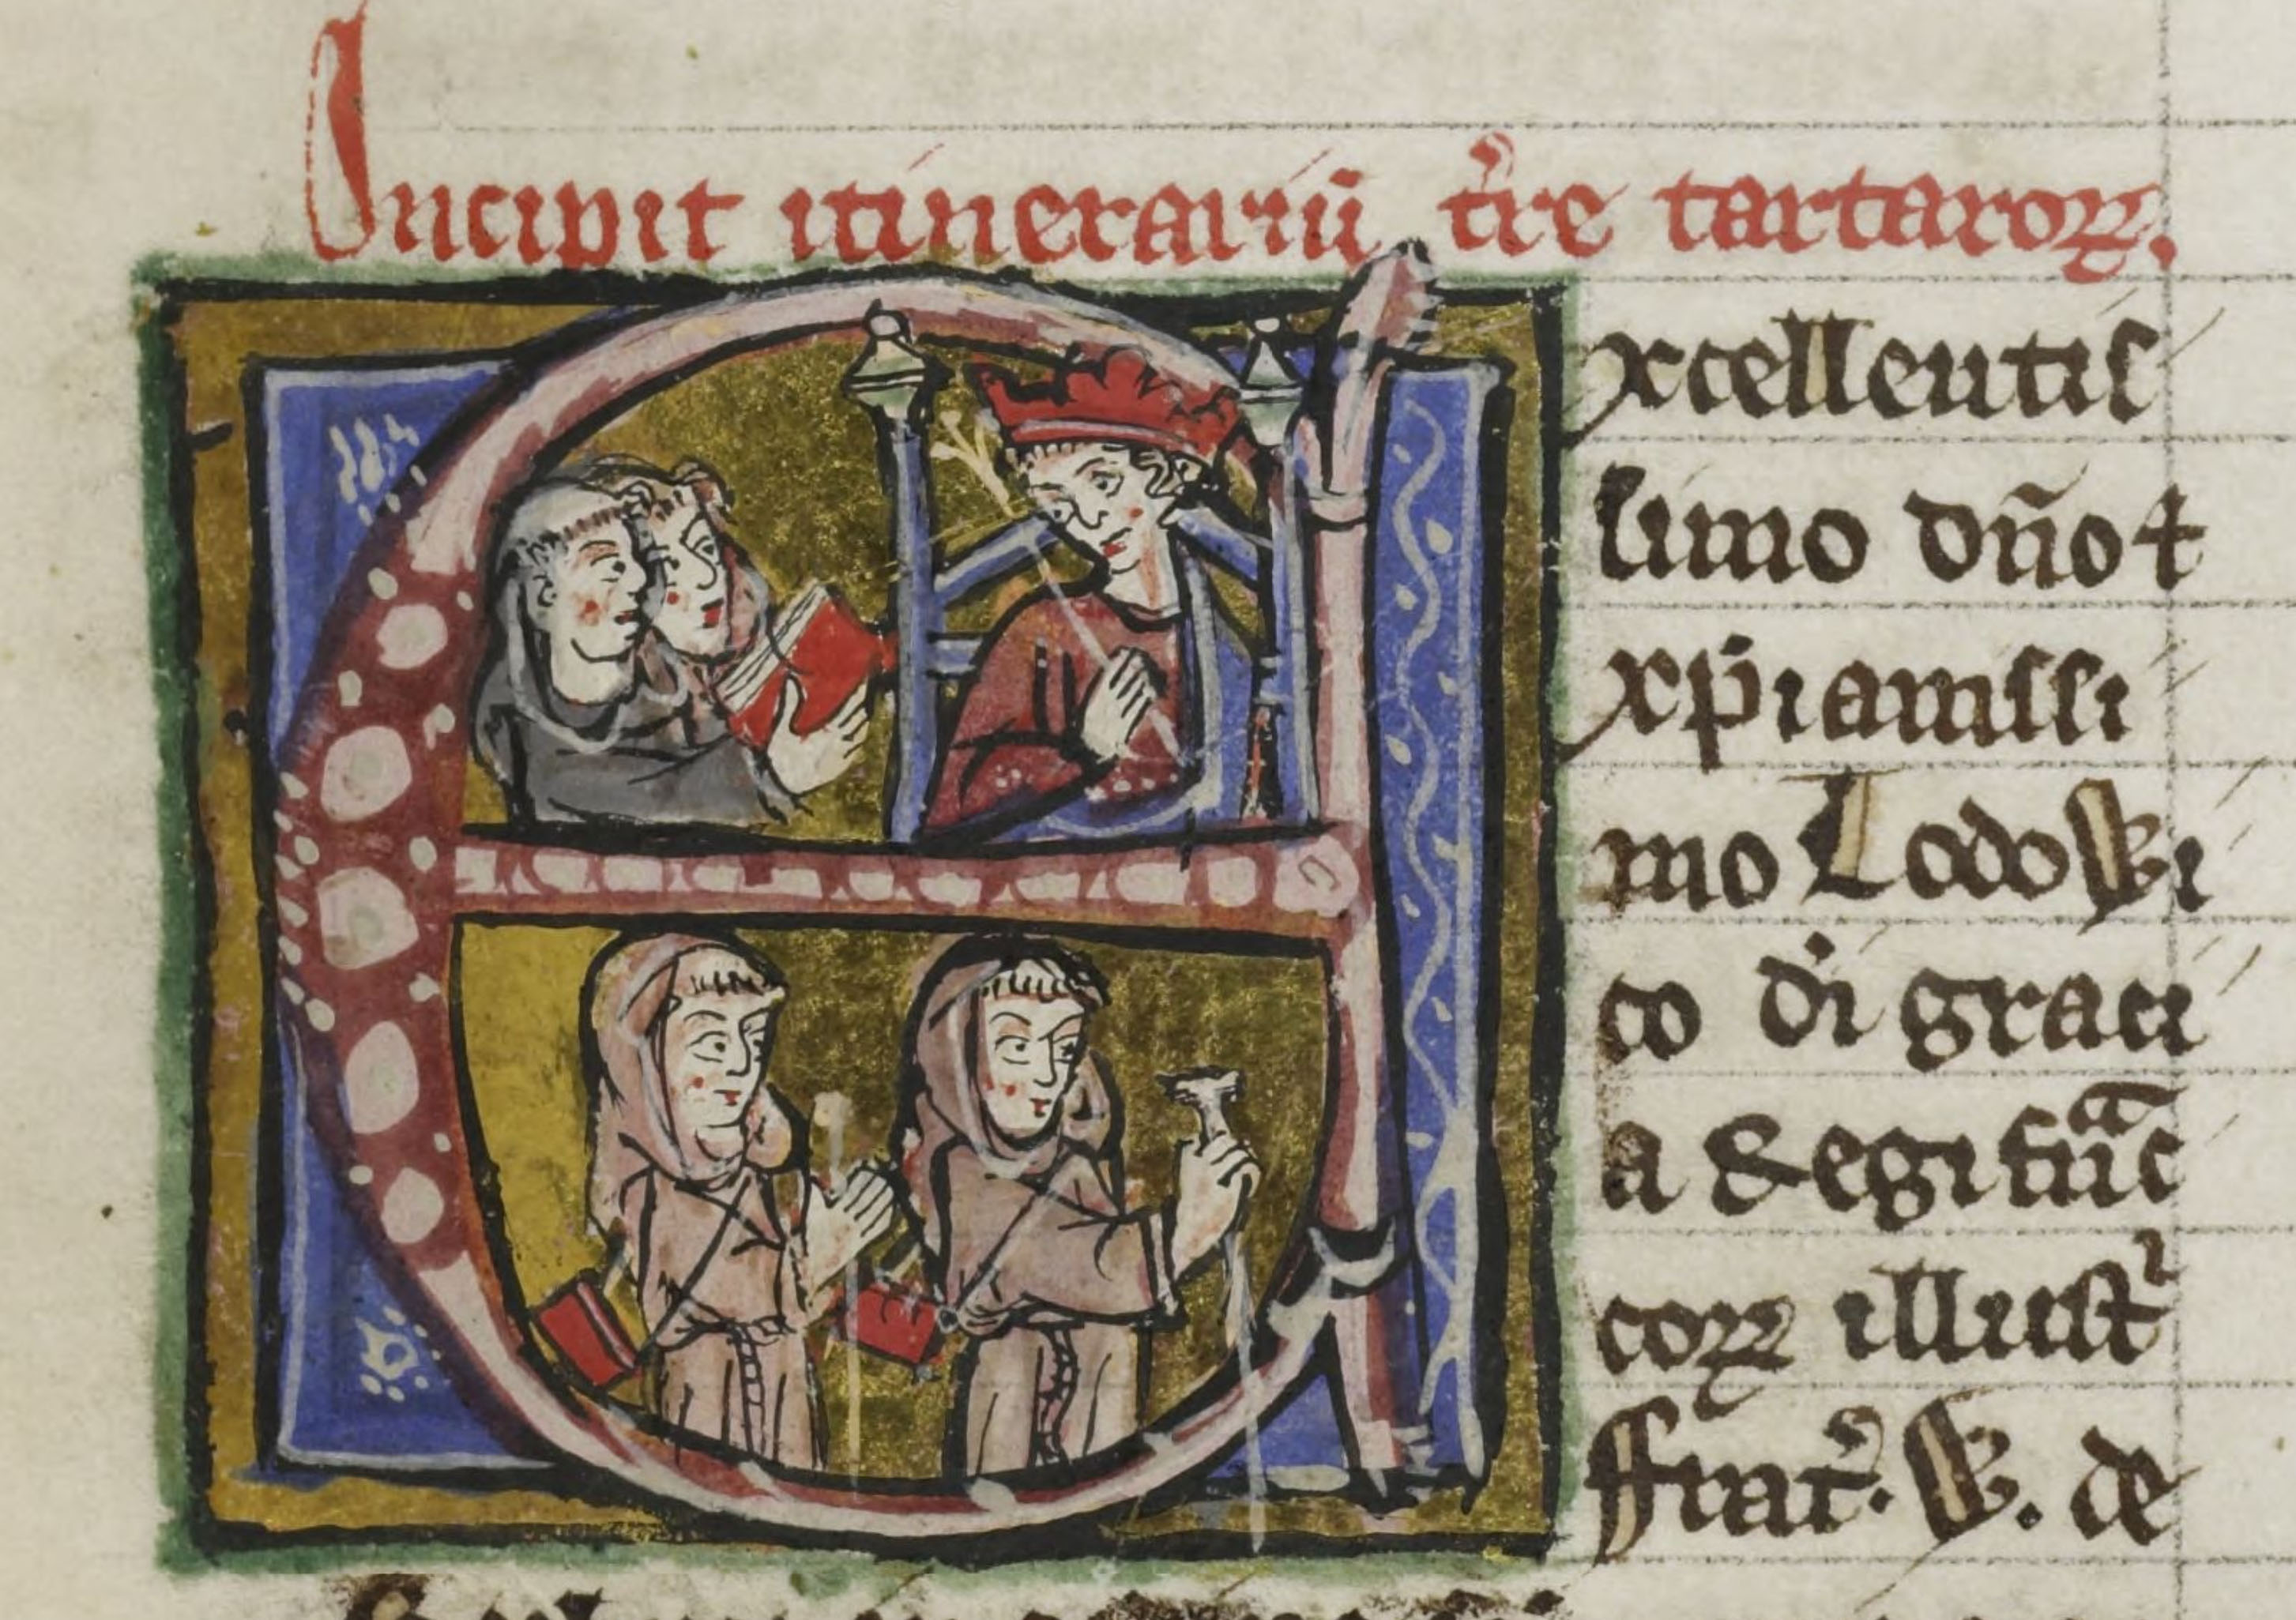 Incipit itinerariū t̓re tartaroꝝ.
xcellentis
simo dn̄o ⁊
xp̄ianissi
mo Lodowi
co d̓i graci
a Regi franc
coꝝ illustr
ffrat̓. W. de